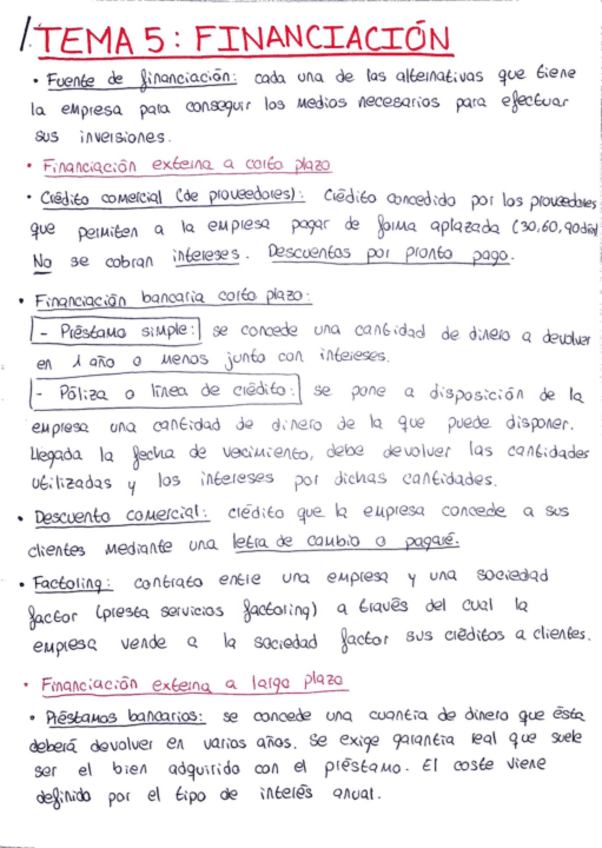 TEMA 5: FINANCIACIÓN
• Fuente de financiación: cada una de las alternativas que tiene
la empresa para conseguir los medios necesarios para efectuar
sus inversiones.
• Financiación externa a corto plazo
• Crédito comercial (de proveedores): Crédito concedido por los proveedores
que permiten a la empresa pagar de forma aplazada (30,60,90 días)
No se cobran intereses. Descuentos por pronto pago.
• Financiación bancaria corto plazo:
- Préstamo simple: se concede una cantidad de dinero a devolver
en 1 año o menos junto con intereses.
- Póliza o línea de crédito: se pone a disposición de la
empresa una cantidad de dinero de la que puede disponer.
Llegada la fecha de vecimiento, debe devolver las cantidades
utilizadas y los intereses por dichas cantidades.
• Descuento comercial: crédito que la empresa concede a sus
clientes mediante una letra de cambio o pagaré.
• Factoring: contrato entre una empresa y una sociedad
factor (presta servicios factoring) a través del cual la
empresa vende a la sociedad factor sus créditos a clientes.
• Financiación externa a largo plazo
• Préstamos bancarios: se concede una cuantía de dinero que ésta
deberá devolver en varios años. Se exige garantía real que suele
ser el bien adquirido con el préstamo. El coste viene
definido por el tipo de interés anual.